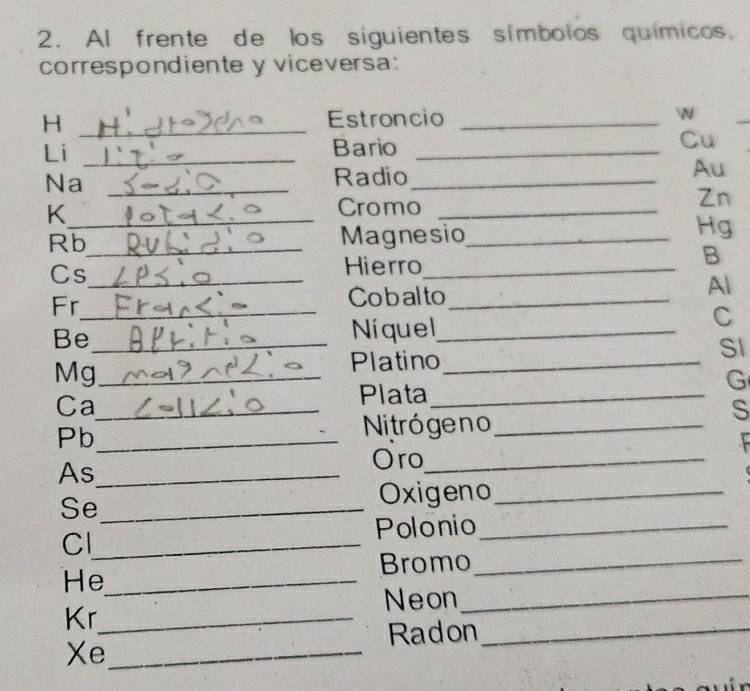 2. Al frente de los siguientes símbolos químicos,
correspondiente y viceversa:
H Hidrogeno Estroncio W
Li litio Bario Cu
Na Sodio Radio Au
K Potacio Cromo Zn
Rb Rubidio Magnesio Hg
Cs Cesio Hierro B
Fr Francio Cobalto Al
Be Níquel C
Mg magnecio Platino SI
Ca Plata G
Pb Nitrógeno S
As Oro
Se Oxigeno
Cl Polonio
He Bromo
Kr Neon
Xe Radon